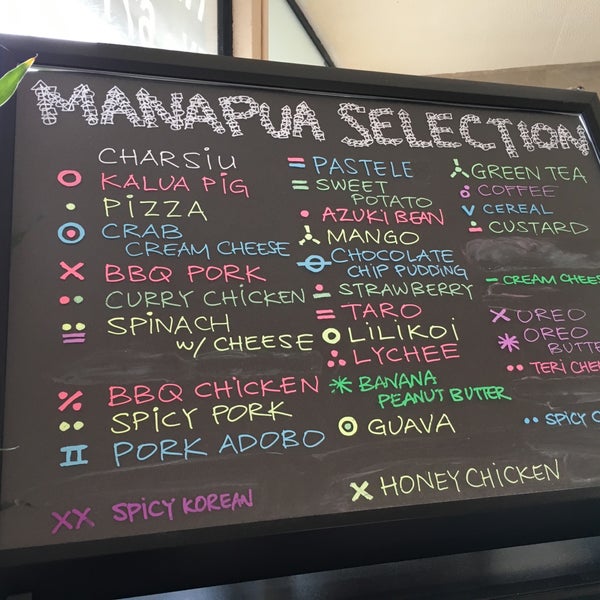 MANAPUA SELECTION
CHARSIU
KALUA PIG
PIZZA
CRAB
CREAM CHEESE
BBQ PORK
CURRY CHICKEN
SPINACH
W/ CHEESE
BBQ CHICKEN
SPICY PORK
PORK ADOBO
XX SPICY KOREAN
PASTELE
SWEET
POTATO
AZUKI BEAN
MANGO
CHOCOLATE
CHIP PUDDING
STRAWBERRY
TARO
LILIKOI
LYCHEE
BANANA
PEANUT BUTTER
GUAVA
X HONEY CHICKEN
GREEN TEA
COFFEE
CEREAL
CUSTARD
CREAM CHEES
OREO
OREO
BUTTE
TERI CHE
SPICY C